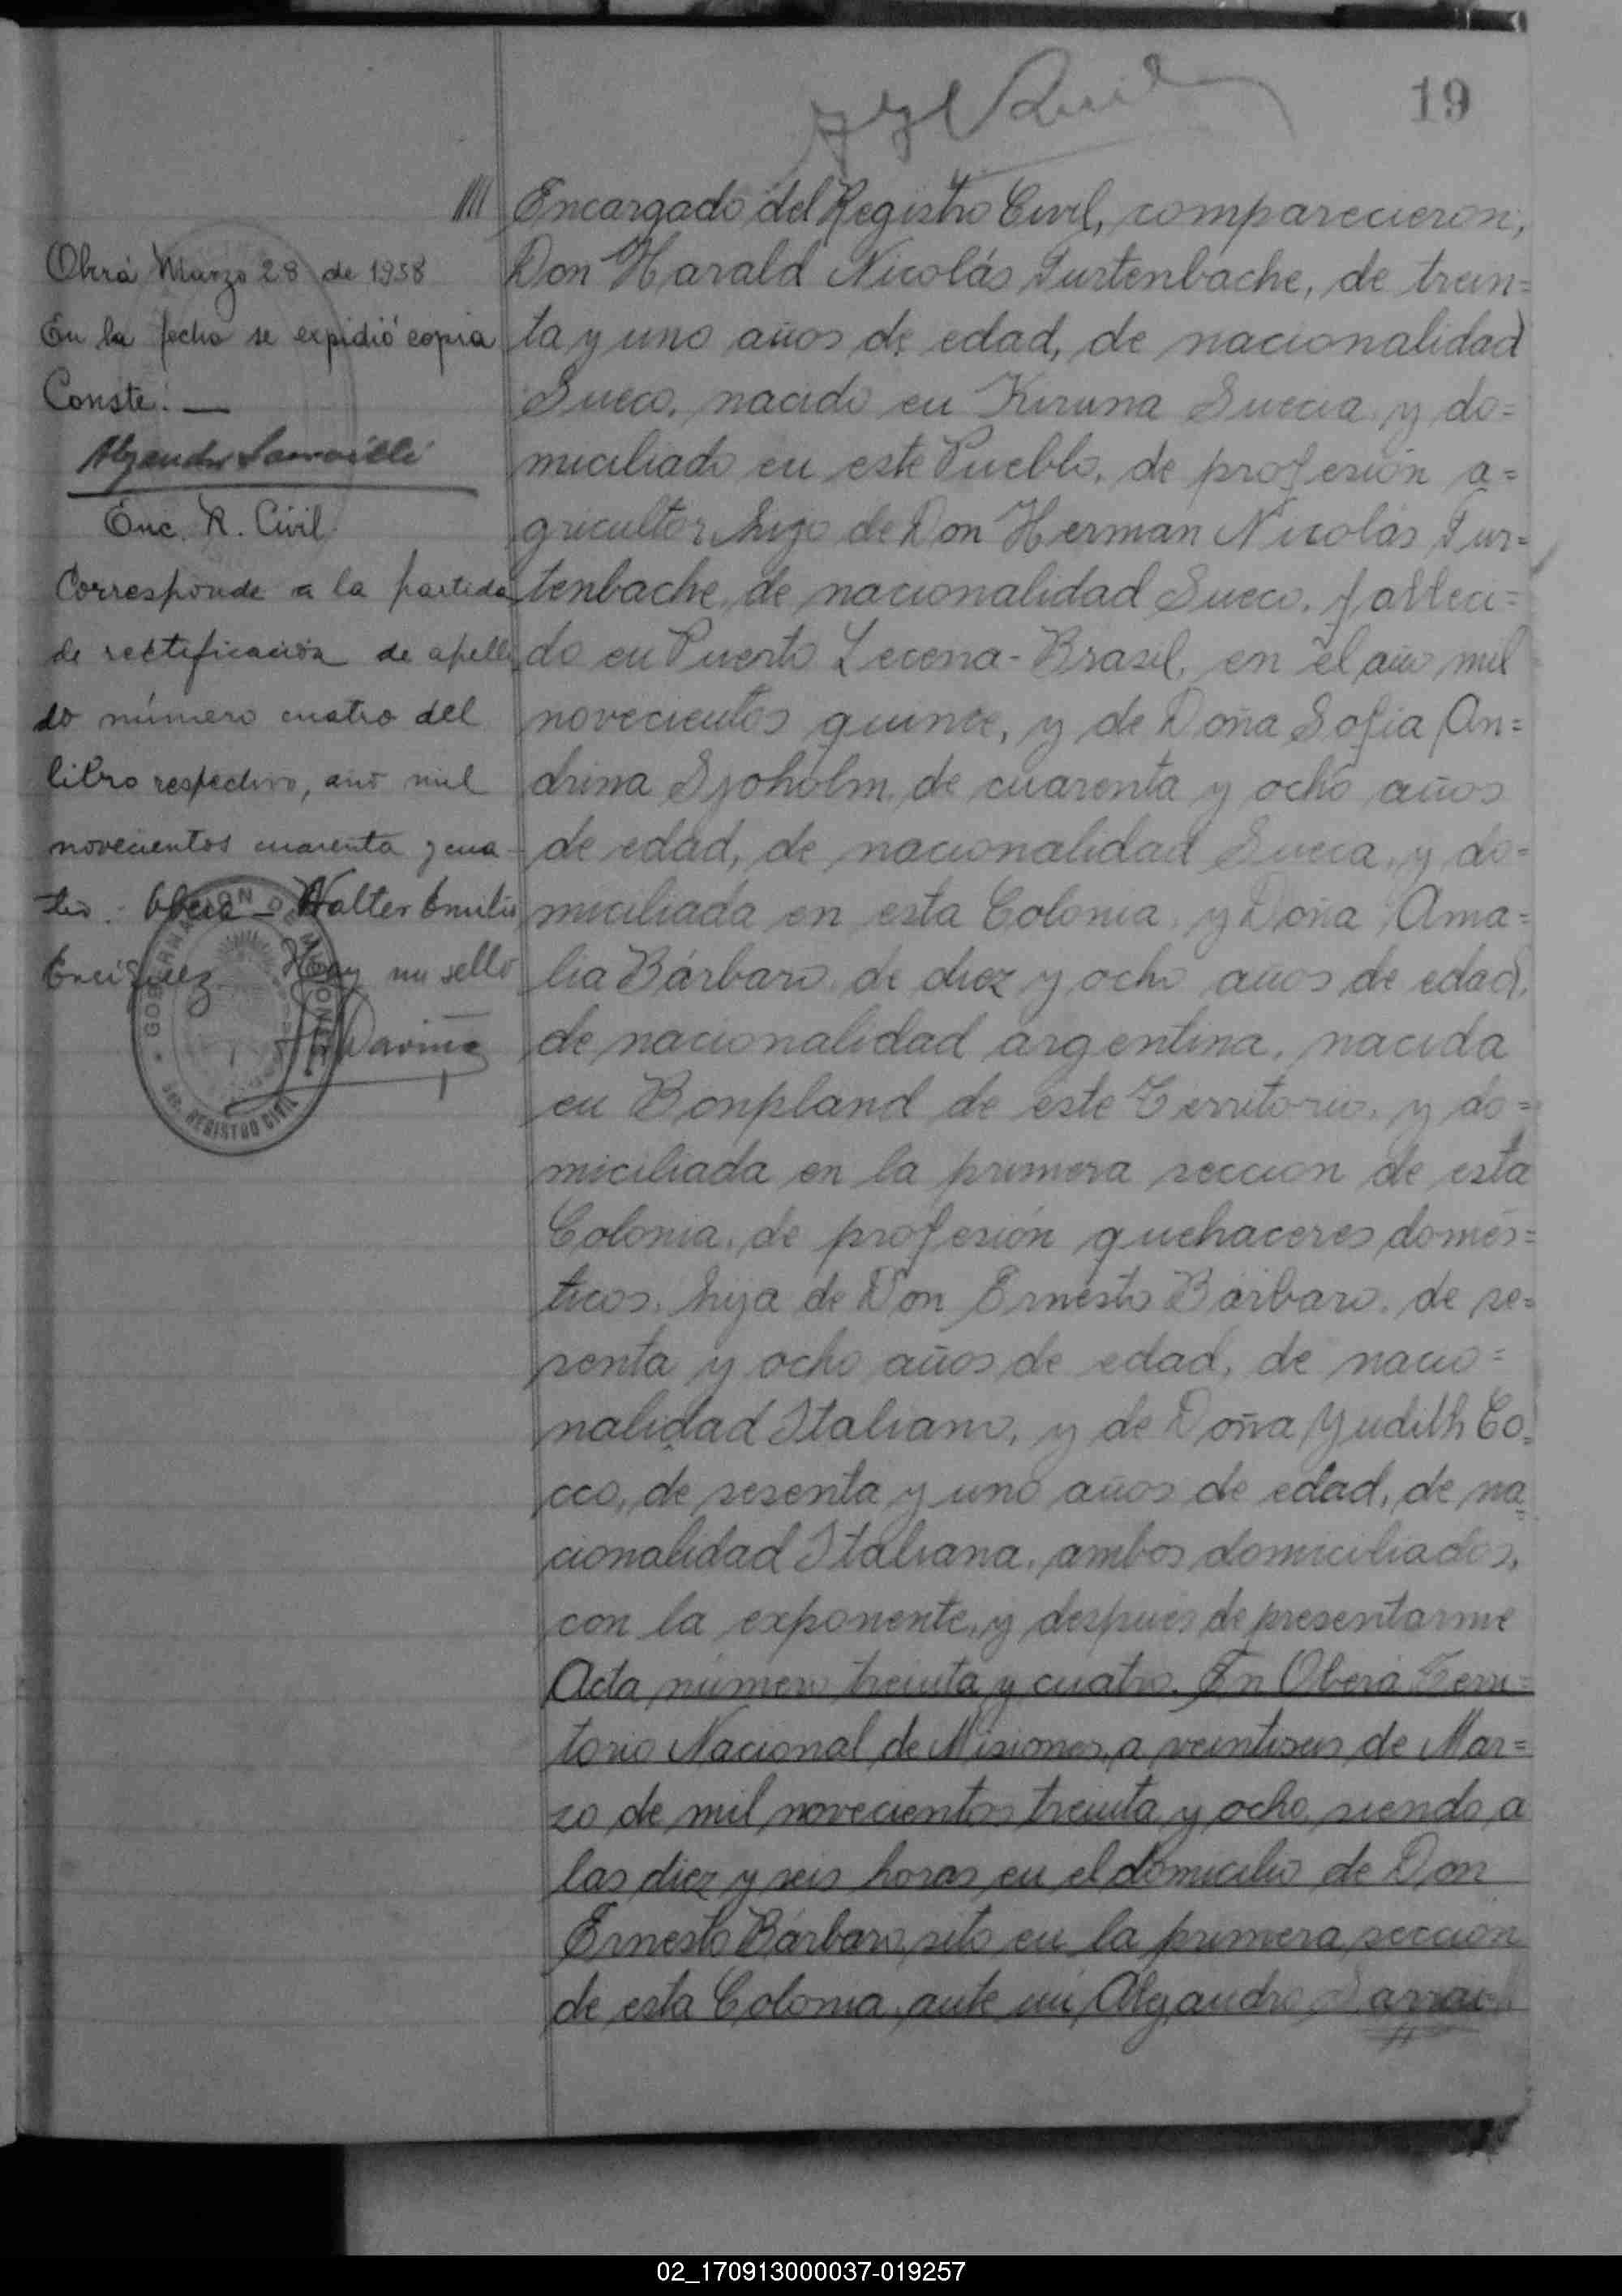 19
//// Encargado del Registro Civil, comparecieron,
Don Harald Nicolás Turtenbache, de trein=
ta y uno años de edad, de nacionalidad
Sueco, nacido en Kiruna Suecia y do=
miciliado en este Pueblo, de profesión a=
gricultor hijo de Don Herman Nicolás Tur=
tenbache, de nacionalidad Sueco, falleci=
do en Puerto Lecena - Brasil, en el año mil
novecientos quince, y de Doña Sofia An=
drina Sjoholm, de cuarenta y ocho años
de edad, de nacionalidad Sueca, y do=
miciliada en esta Colonia, y Doña Ama=
lia Bárbaro, de diez y ocho años de edad,
de nacionalidad argentina, nacida
en Bonpland de este Territorio, y do=
miciliada en la primera seccion de esta
Colonia, de profesión quehaceres domés=
ticos, hija de Don Ernesto Bárbaro, de se=
senta y ocho años de edad, de nacio=
nalidad Italiano, y de Doña Yudith Co=
cco, de sesenta y uno años de edad, de na=
cionalidad Italiana, ambos domiciliados,
con la exponente, y después de presentarme
Acta número treinta y cuatro. En Oberá Terri=
torio Nacional de Misiones, a veintiseis de Mar=
zo de mil novecientos treinta y ocho, siendo a
las diez y seis horas en el domicilio de Don
Ernesto Bárbaro, sito en la primera sección
de esta Colonia, ante mi, Alejandro
Oberá Marzo 28 de 1938
En la fecha se expidió copia
Conste: —
Enc. R. Civil
Corresponde a la partida
de rectificación de apelli
do número cuatro del
libro respectivo, año mil
novecientos cuarenta y cua-
tro. Oberá - Walter Emilio
Enciguez Hay un sello
GOBERNACION DE MISIONES
REGISTRO CIVIL
02_170913000037-019257